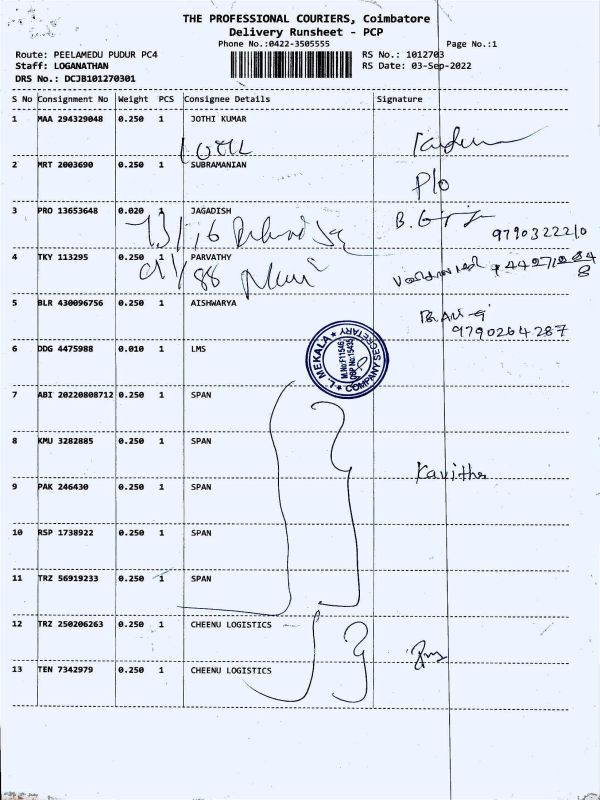 THE PROFESSIONAL COURIERS, Coimbatore
Delivery Runsheet - PCP
Phone No.:0422-3505555
Page No.:1
Route: PEELAMEDU PUDUR PC4
RS No.: 1012703
Staff: LOGANATHAN
RS Date: 03-Sep-2022
DRS No.: DCJB101270301
S No Consignment No Weight PCS Consignee Details Signature
1 MAA 294329048 0.250 1 JOTHI KUMAR
2 MRT 2003690 0.250 1 SUBRAMANIAN
P/o
3 PRO 13653648 0.020 1 JAGADISH
9790322210
4 TKY 113295 0.250 1 PARVATHY
88
5 BLR 430096756 0.250 1 AISHWARYA
9790264287
6 DDG 4475988 0.010 1 LMS
L. MEKALA
COMPANY SECRETARY
7 ABI 20220808712 0.250 1 SPAN
8 KMU 3282885 0.250 1 SPAN
Kavitha
9 PAK 246430 0.250 1 SPAN
10 RSP 1738922 0.250 1 SPAN
11 TRZ 56919233 0.250 1 SPAN
12 TRZ 250206263 0.250 1 CHEENU LOGISTICS
13 TEN 7342979 0.250 1 CHEENU LOGISTICS